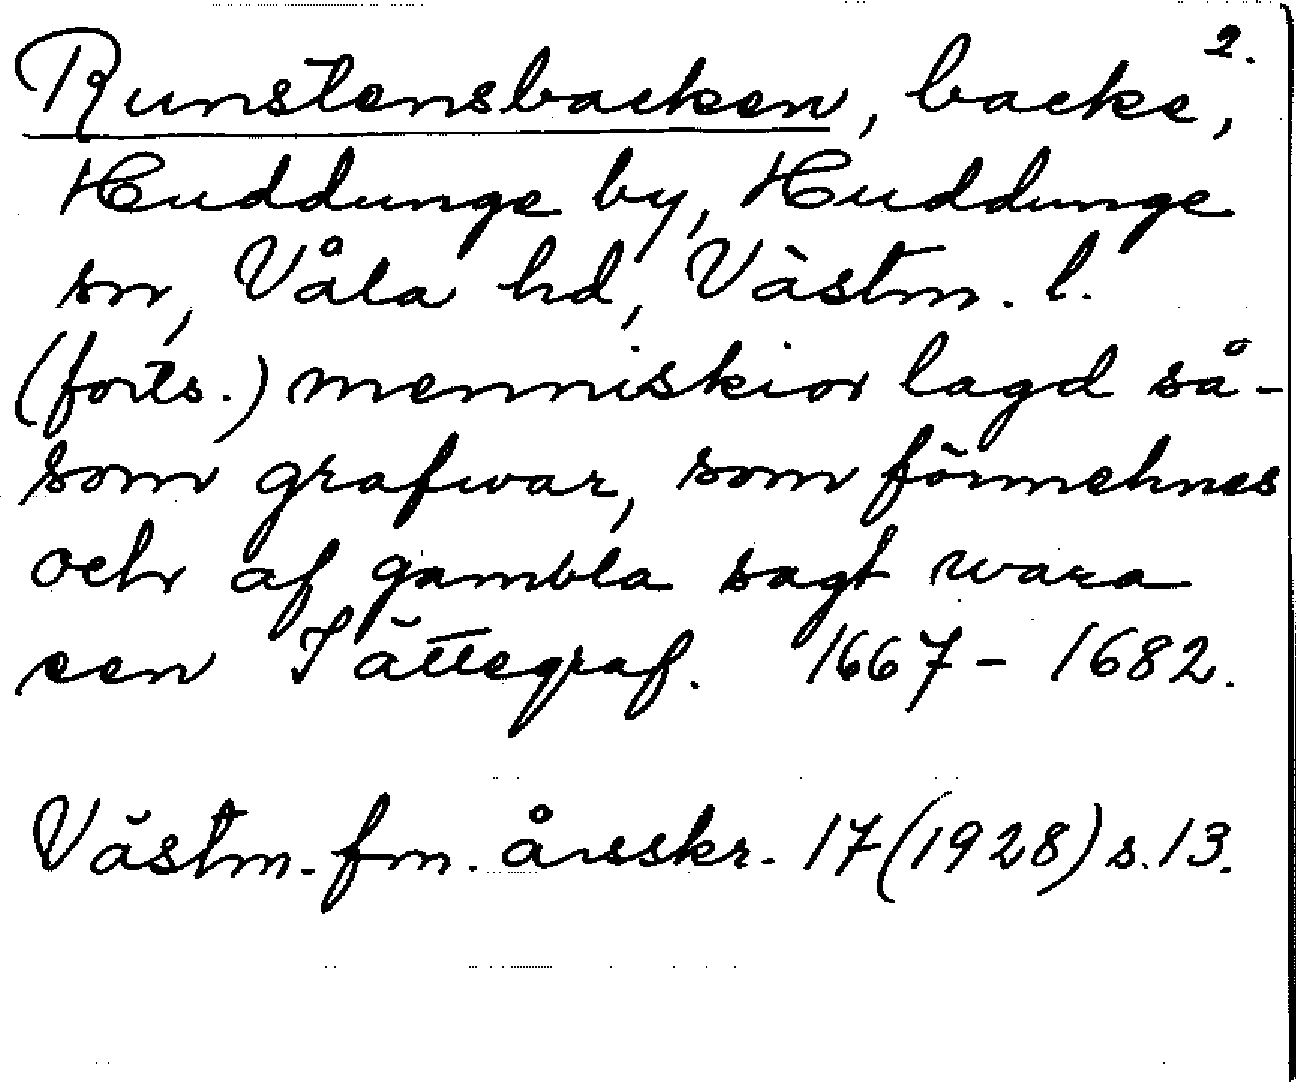 2.
Runstensbacken, backe,
Huddunge by, Huddunge
sn, Våla hd, Västm. l.
(forts.) menniskior lagd så-
som grafwar, som förmehnes
och af gambla sagt wara
een Jättegraf. 1667-1682.
Västm. fm. årsskr. 17(1928) s. 13.